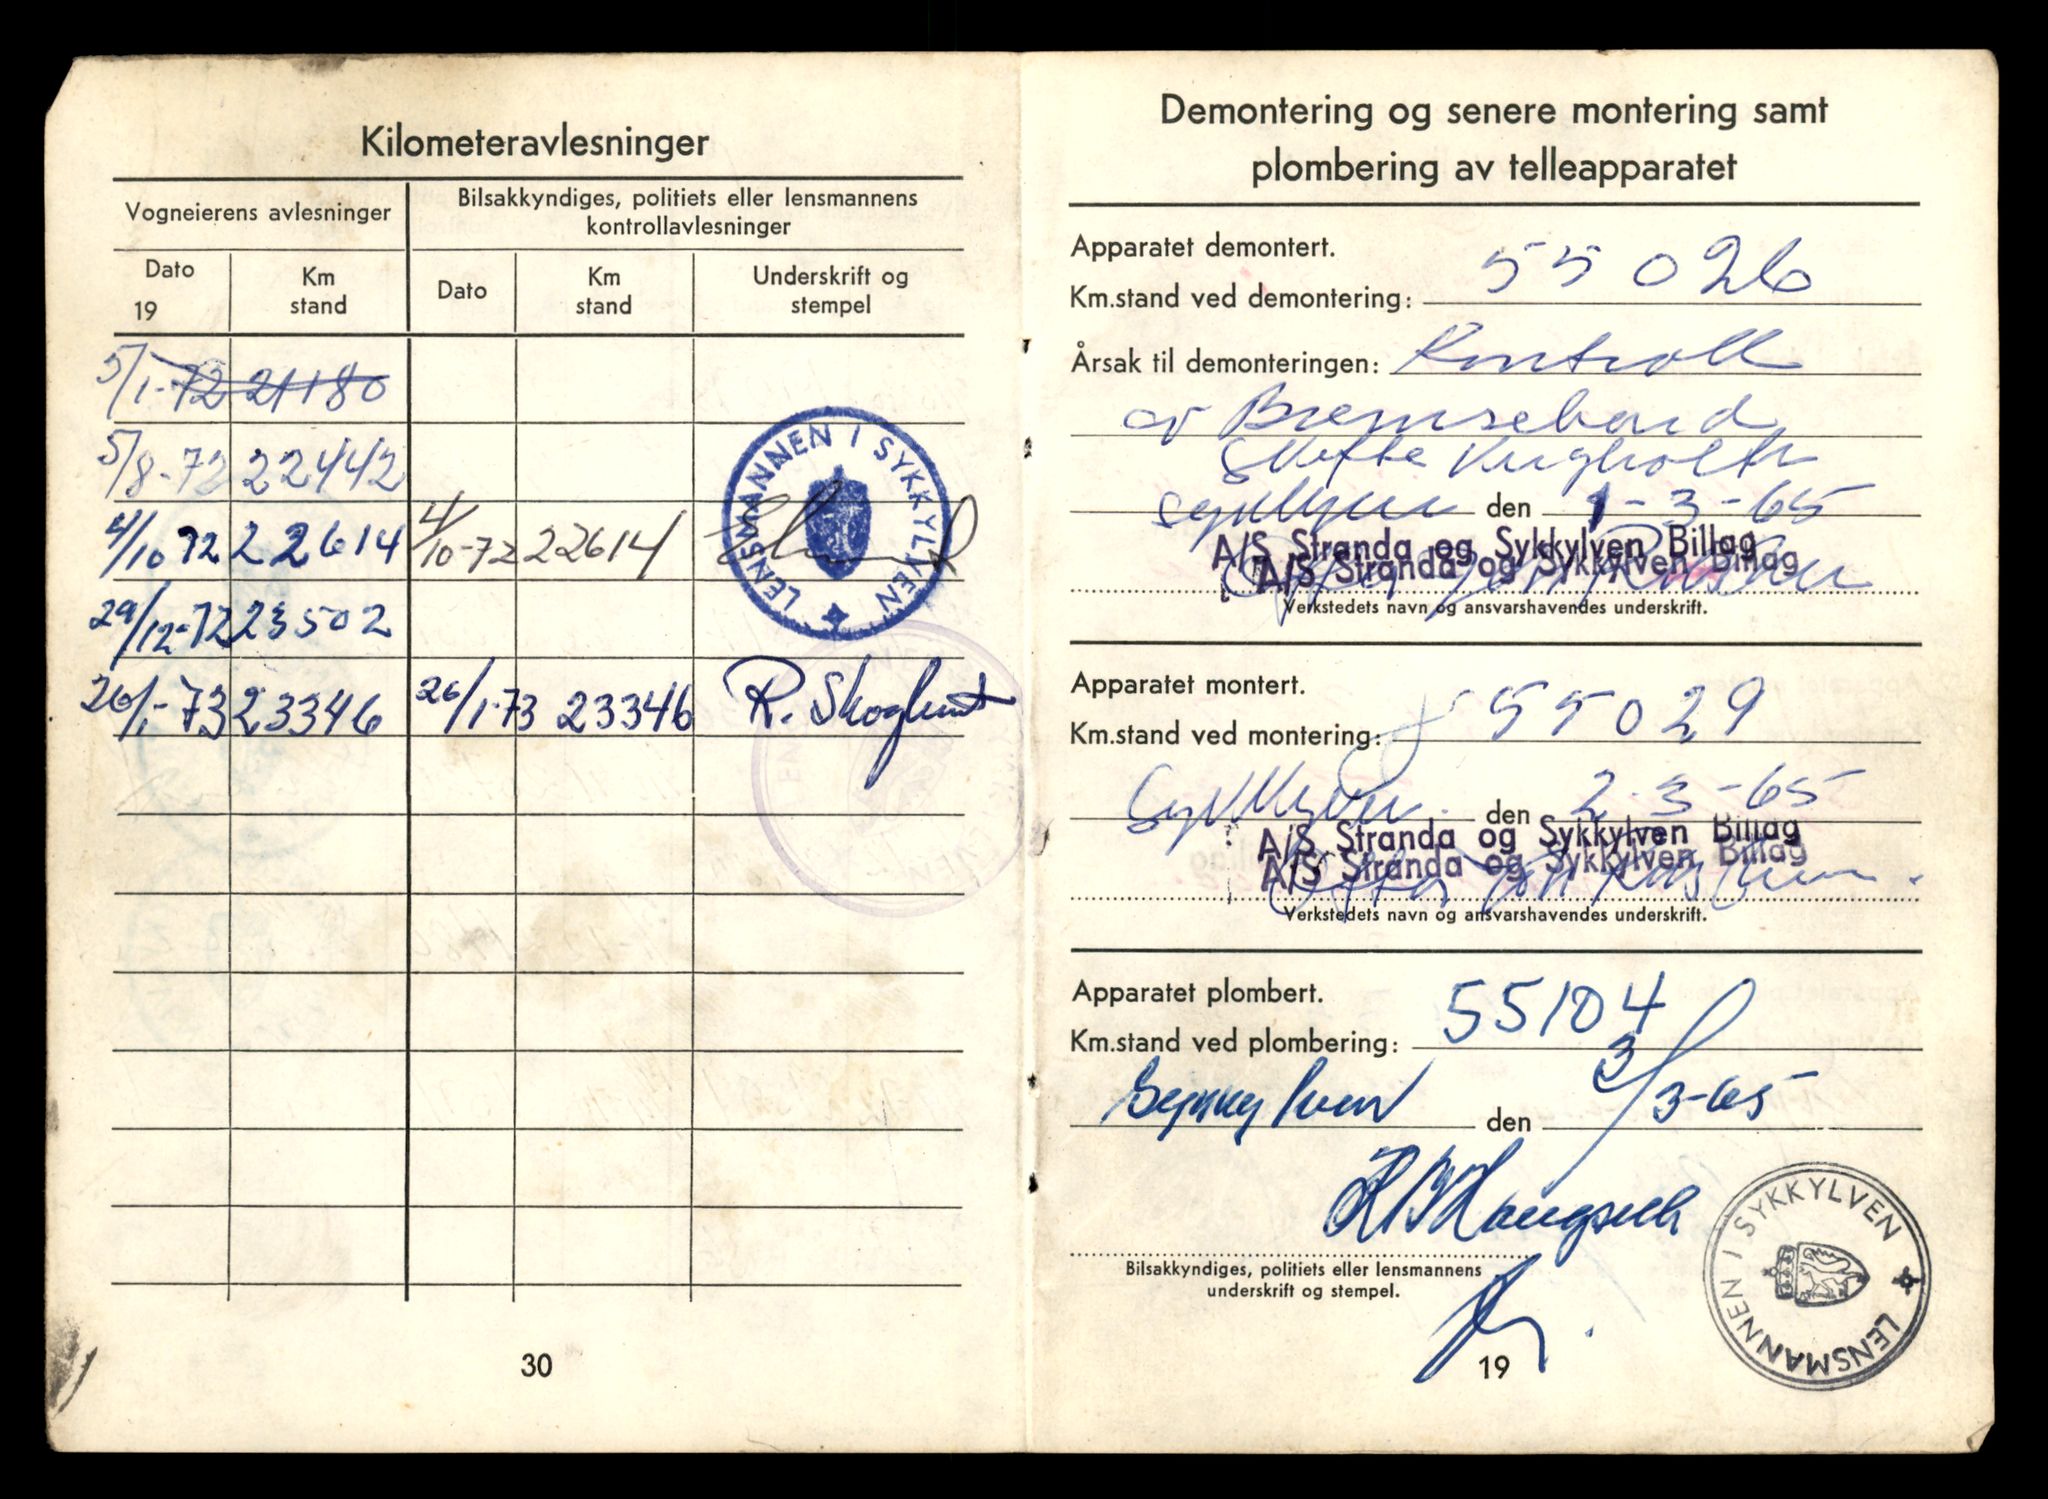 Kilometeravlesninger
Vogneierens avlesninger
Bilsakkyndiges, politiets eller lensmannens
kontrollavlesninger
Dato
19
Km
stand
Dato
Km
stand
Underskrift og
stempel
5/1-72 21180
5/8-72 22442
4/10 72 22614 4/10-72 22614
LENSMANNEN I SYKKYLVEN
29/12-72 23502
26/1-73 23346 26/1-73 23346 R. Skoglund
30
Demontering og senere montering samt
plombering av telleapparatet
Apparatet demontert.
Km.stand ved demontering: 55026
Årsak til demonteringen: Kontroll
av Bremsebond
Skifte
Sykkylven den 1-3-65
A/S Stranda og Sykkylven Billag
A/S Stranda og Sykkylven Billag
Verkstedets navn og ansvarshavendes underskrift.
Apparatet montert.
Km.stand ved montering: 55029
Sykkylven den 2-3-65
A/S Stranda og Sykkylven Billag
A/S Stranda og Sykkylven Billag
Verkstedets navn og ansvarshavendes underskrift.
Apparatet plombert.
Km.stand ved plombering: 55104
Sykkylven den 3/3-65
LENSMANNEN I SYKKYLVEN
Bilsakkyndiges, politiets eller lensmannens
underskrift og stempel.
19